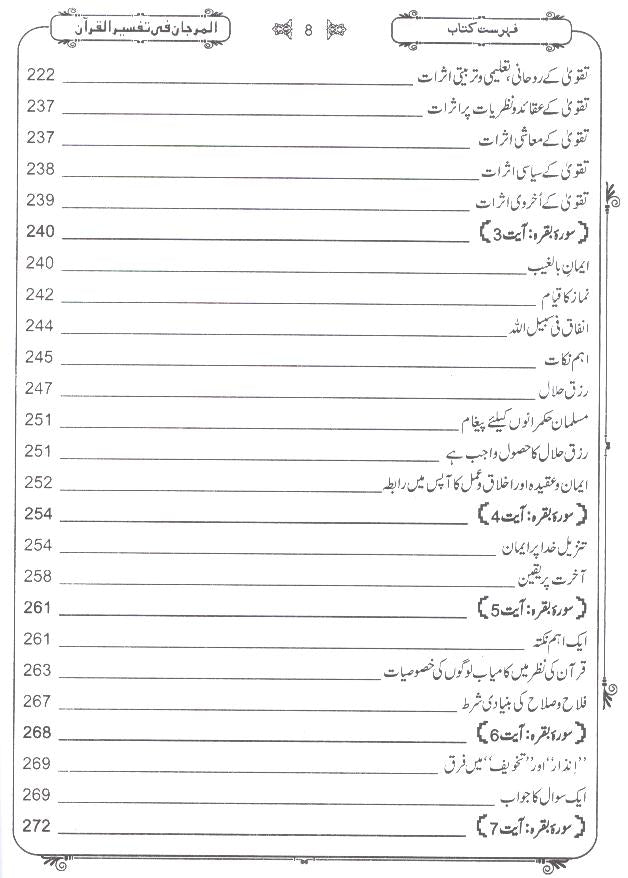 فہرست کتاب 8 المرجان فی تفسیر القرآن
تقویٰ کے روحانی، تعلیمی و تربیتی اثرات 222
تقویٰ کے عقائد و نظریات پر اثرات 237
تقویٰ کے معاشی اثرات 237
تقویٰ کے سیاسی اثرات 238
تقویٰ کے اُخروی اثرات 239
﴿سورۂ بقرہ: آیت 3﴾ 240
ایمان بالغیب 240
نماز کا قیام 242
انفاق فی سبیل اللہ 244
اہم نکات 245
رزق حلال 247
مسلمان حکمرانوں کیلئے پیغام 251
رزق حلال کا حصول واجب ہے 251
ایمان و عقیدہ اور اخلاق و عمل کا آپس میں رابطہ 252
﴿سورۂ بقرہ: آیت 4﴾ 254
تنزیل خدا پر ایمان 254
آخرت پر یقین 258
﴿سورۂ بقرہ: آیت 5﴾ 261
ایک اہم نکتہ 261
قرآن کی نظر میں کامیاب لوگوں کی خصوصیات 263
فلاح و صلاح کی بنیادی شرط 267
﴿سورۂ بقرہ: آیت 6﴾ 268
’’انذار‘‘ اور ’’تخویف‘‘ میں فرق 269
ایک سوال کا جواب 269
﴿سورۂ بقرہ: آیت 7﴾ 272